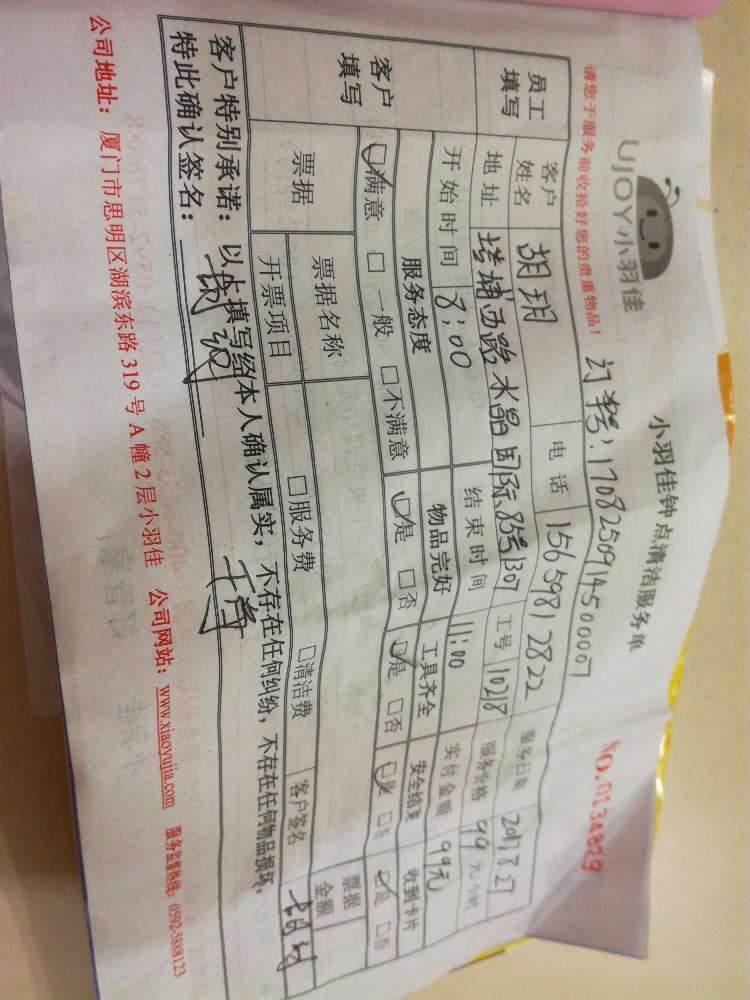 UJOY小羽佳
小羽佳钟点清洁服务单
NO.0134829
请您于服务前收拾好您的贵重物品！
订单号：1708250914500007
员工填写
客户姓名 胡玥 电话 15659812822 服务日期 2017.8.27
地址 塔埔西路水晶国际85号1307 工号 1028 服务价格 99元
开始时间 8:00 结束时间 11:00 实付金额 99元
客户填写
服务态度 物品完好 工具齐全 安全结束 收到卡片
☑满意 □一般 □不满意 ☑是 □否 ☑是 □否 ☑是 □否 ☑是 □否
票据 票据名称 票据金额
开票项目 □服务费 □清洁费 客户签名
客户特别承诺：以上填写经本人确认属实，不存在任何纠纷，不存在任何物品损坏，
特此确认签名：
公司地址：厦门市思明区湖滨东路319号A幢2层小羽佳 公司网站：www.xiaoyujia.com 服务监督热线：0592-5888123